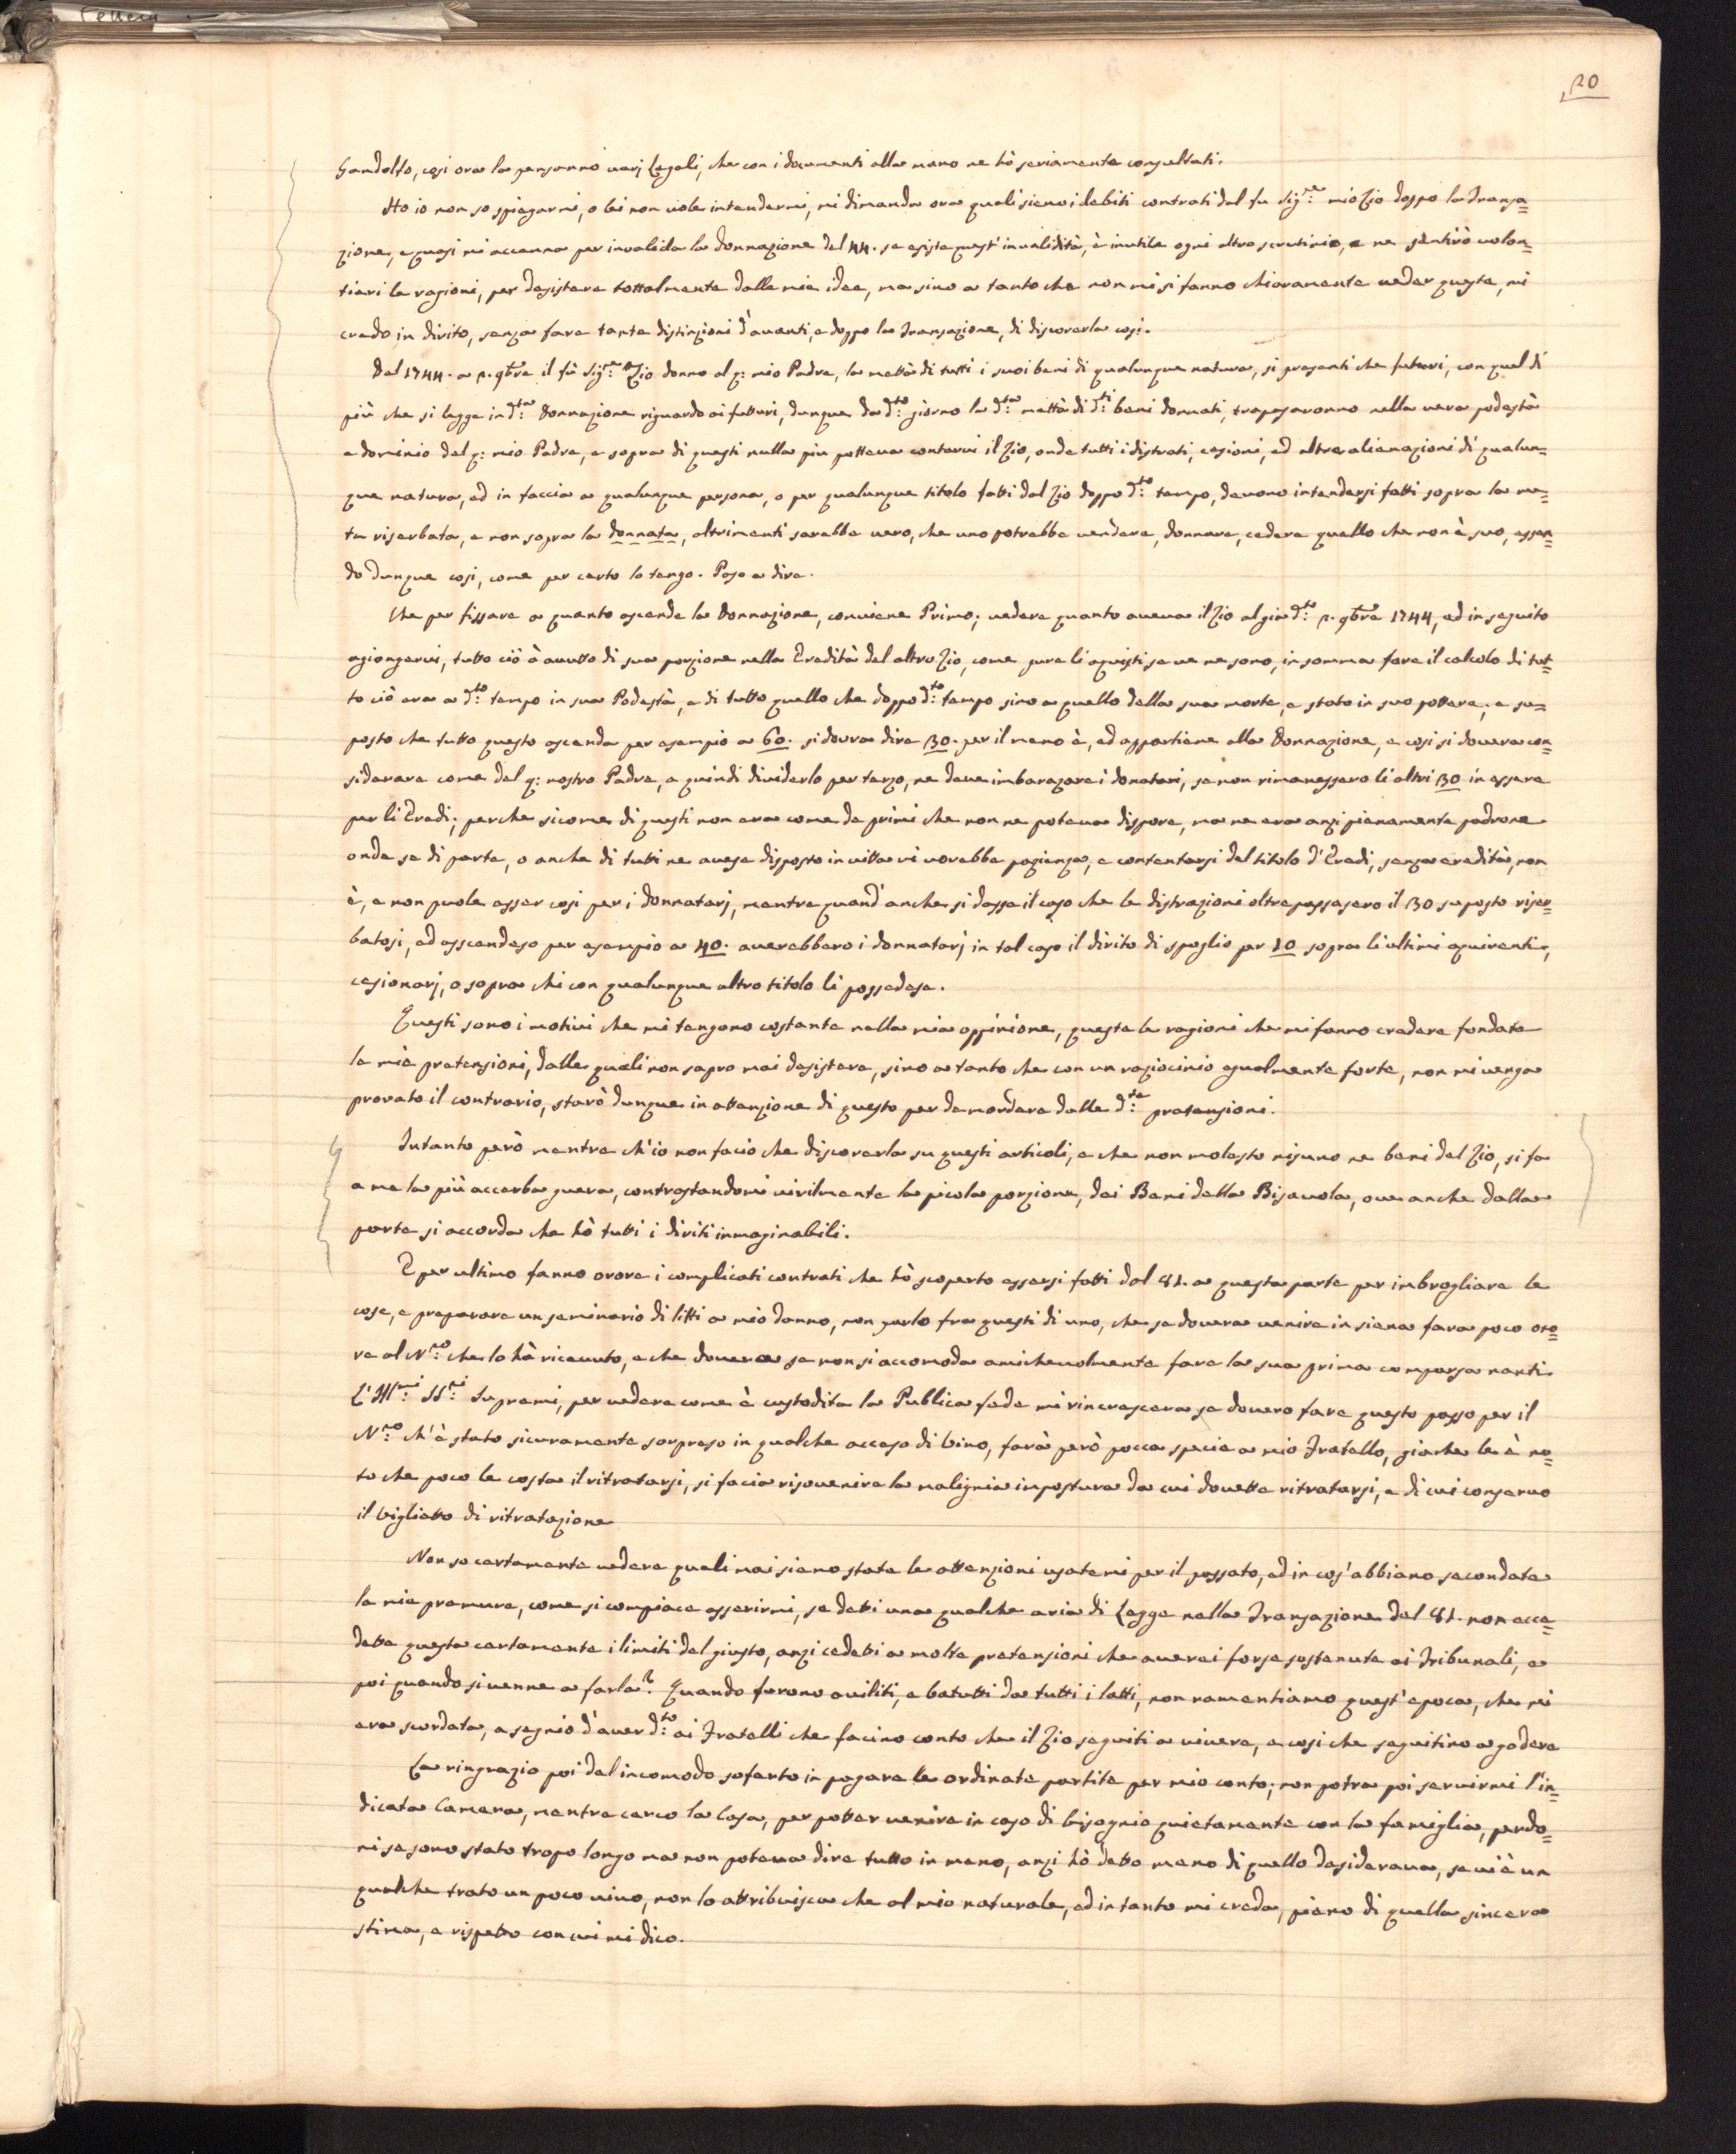 20
Gandolfo, così ora la pensanno varj Legali, che con i documenti alla mano ne hò seriamente consultati.
Ho io non so spiegarmi, o lei non vole intendermi, mi dimanda ora quali sieno i debiti contrati dal fu Sig:re mio Zio doppo la Transa=
zione, e quasi mi accenna per invalida la Donnazione del 44. se esiste quest' invalidità, è inutile ogni altro scrutinio, e ne sentirò volon=
tieri le ragioni, per desistere tottalmente dalle mie idee, ma sino a tanto che non mi si fanno chiaramente veder queste, mi
credo in dirito, senza fare tante distinzioni d'avanti, e doppo la Transazione, di discorerla così.
Del 1744. a 2. 9bre il fù Sig:re Zio donno al q: mio Padre, la mettà di tutti i suoi beni di qualunque natura, si presenti che futturi, con quel di
più che si legge in d:ta Donnazione riguardo ai futturi, dunque da d:to giorno la d:ta mettà di d:ti beni donnati, trapasaronno nella vera podestà
e dominio del q: mio Padre, e sopra di questi nulla piu potteva contarvi il Zio, onde tutti i distrati, cesioni, ed altre alienazioni di qualun=
que natura, ed in faccia a qualunque persona, o per qualunque titolo fatti dal Zio doppo d:to tempo, devono intendersi fatti sopra la me=
ta riserbata, e non sopra la donnata, altrimenti sarebbe vero, che uno potrebbe vendere, donnare, cedere quello che non è suo, essen=
do dunque così, come per certo lo tengo. Paso a dire.
Che per fissare a quanto ascende la Donnazione, conviene Primo; vedere quanto aveva il Zio al gia d:to 2. 9bre 1744, ed in seguito
agiongervi, tutto ciò à avutto di sua porzione nella Eredità del altro Zio, come pure li aquisti se ve ne sono, in somma fare il calcolo di tut=
to ciò era a d:to tempo in sua Podestà, e di tutto quello che doppo d:to tempo sino a quello della sua morte, e stato in suo pottere; e su=
posto che tutto questo ascenda per esempio a 60. si dovra dire 30. per il meno è, ed appartiene alla Donnazione, e così si dovera con=
siderare come del q: nostro Padre, e quindi dividerlo per terzo, ne deve imbarazare i donatari, se non rimanessero li altri 30 in essere
per li Eredi; perche sicome di questi non era come de primi che non ne poteva dispore, ma ne era anzi pienamente padrone
onde se di parte, o anche di tutti ne avese disposto in vitta vi vorebbe pazienza, e contentarsi del titolo d'Eredi, senza eredità, non
è, e non puole esser così per i donnatarj, mentre quand' anche si desse il caso che le distrazioni oltrepassasero il 30 suposto riser=
batosi, ed asscendeso per esempio a 40. averebbero i donnatarj in tal caso il dirito di spoglio per 10 sopra li ultimi aquirenti,
cesionarj, o sopra chi con qualunque altro titolo li possedese.
Questi sono i motivi che mi tengono costante nella mia oppinione, queste le ragioni che mi fanno credere fondate
le mie pretensioni, dalle quali non sapro mai desistere, sino a tanto che con un raziocinio egualmente forte, non mi venga
provato il contrario, starò dunque in attenzione di questo per demordere dalle d:te pretensioni.
Intanto però mentre ch'io non facio che discorerla su questi articoli, e che non molesto nisuno ne beni del Zio, si fa
a me la più accerba guera, contrastandomi vivilmente la picola porzione, dei Beni della Bisavola, ove anche dalla
parte si accorda che hò tutti i diriti immaginabili.
E per ultimo fanno orore i complicati contrati che hò scoperto essersi fatti dal 81. a questa parte per imbrogliare le
cose, e preparare un seminario di litti a mio danno, non parlo fra questi di uno, che se dovera venire in siena fara poco ono=
re al N:ro che lo hà ricevuto, e che dovera se non si accomoda amichevolmente fare la sua prima comparsa nanti
L'Ill:mi SS:ri Supremi, per vedere come è custodita la Publica fede mi rincrescera se dovero fare questo passo per il
N:ro ch'è stato sicuramente sorpreso in qualche acceso di vino, farà però pocca specie a mio Fratello, giache le è no=
to che poco le costa il ritratarsi, si facia risovenire la malignia impostura da cui dovette ritratarsi, e di cui conservo
il bigliatto di ritratazione
Non so certamente vedere quali mai siano state le attenzioni usatemi per il passato, ed in cos' abbiano secondate
le mie premure, come si compiace asserirmi, se detti una qualche aria di Legge nella Transazione del 81. non ecce=
dette questa certamente i limiti del giusto, anzi cedetti a molte pretensioni che averei forse sostenute ai Tribunali, e
poi quando si venne a farla? Quando furono aviliti, e batutti da tutti i latti, non ramentiamo quest' epoca, che mi
era scordata, a segnio d'aver d:to ai Fratelli che facino conto che il Zio seguiti a vivere, e così che seguitino a godere
La ringrazio poi del incomodo soferto in pagare le ordinate partite per mio conto; non potra poi servirmi l'in=
dicata Camera, mentre cerco la Casa, per potter venire in caso di bisognio quietamente con la famiglia, perdo=
ni se sono stato tropo longo ma non poteva dire tutto in meno, anzi hò detto meno di quello desiderava, se vi è un
qualche trato un poco vivo, non lo attribuisca che al mio naturale, ed in tanto mi creda, pieno di quella sincera
stima, e rispetto con cui mi dico.